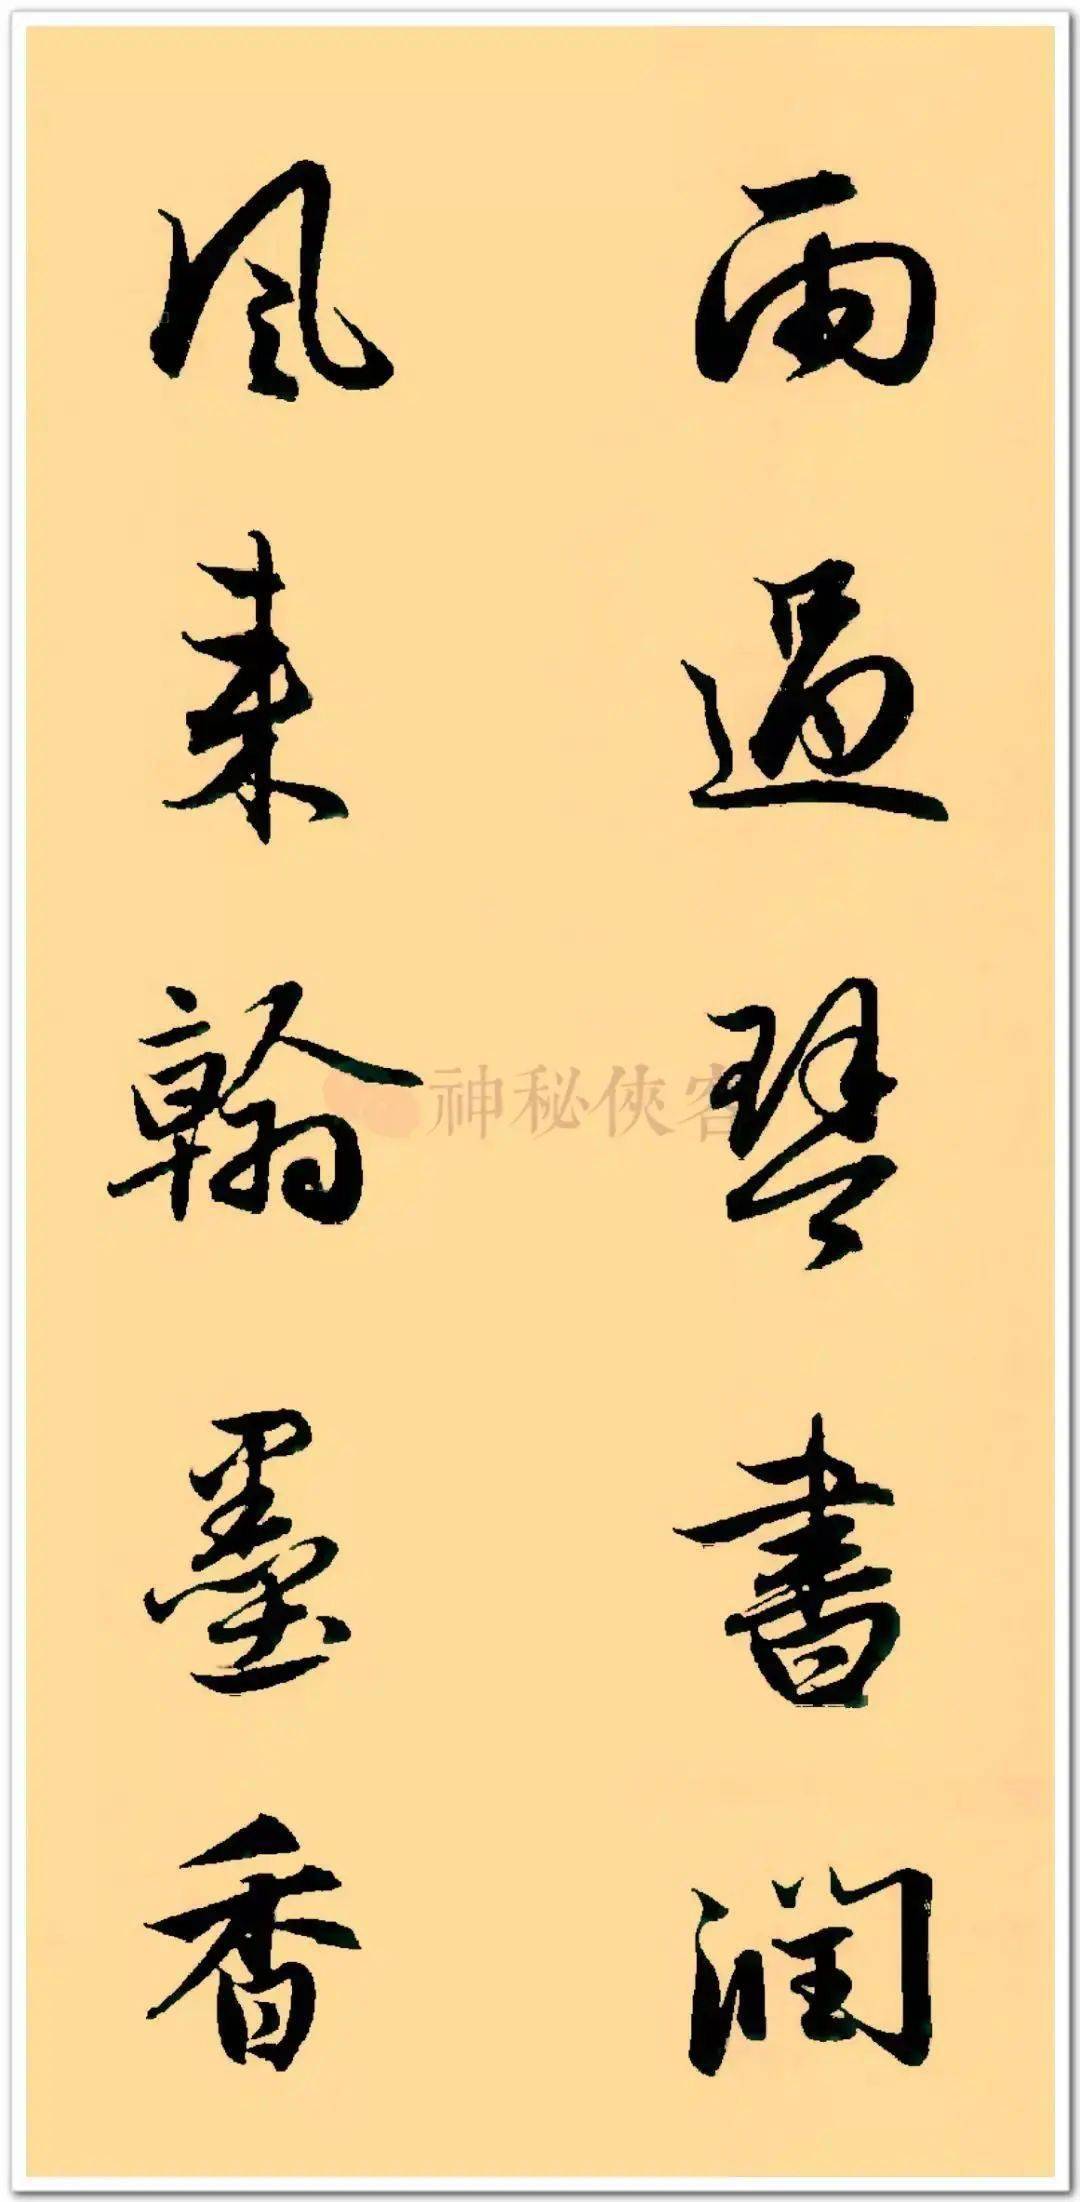 雨過琴書潤
風来翰墨香
神秘俠客